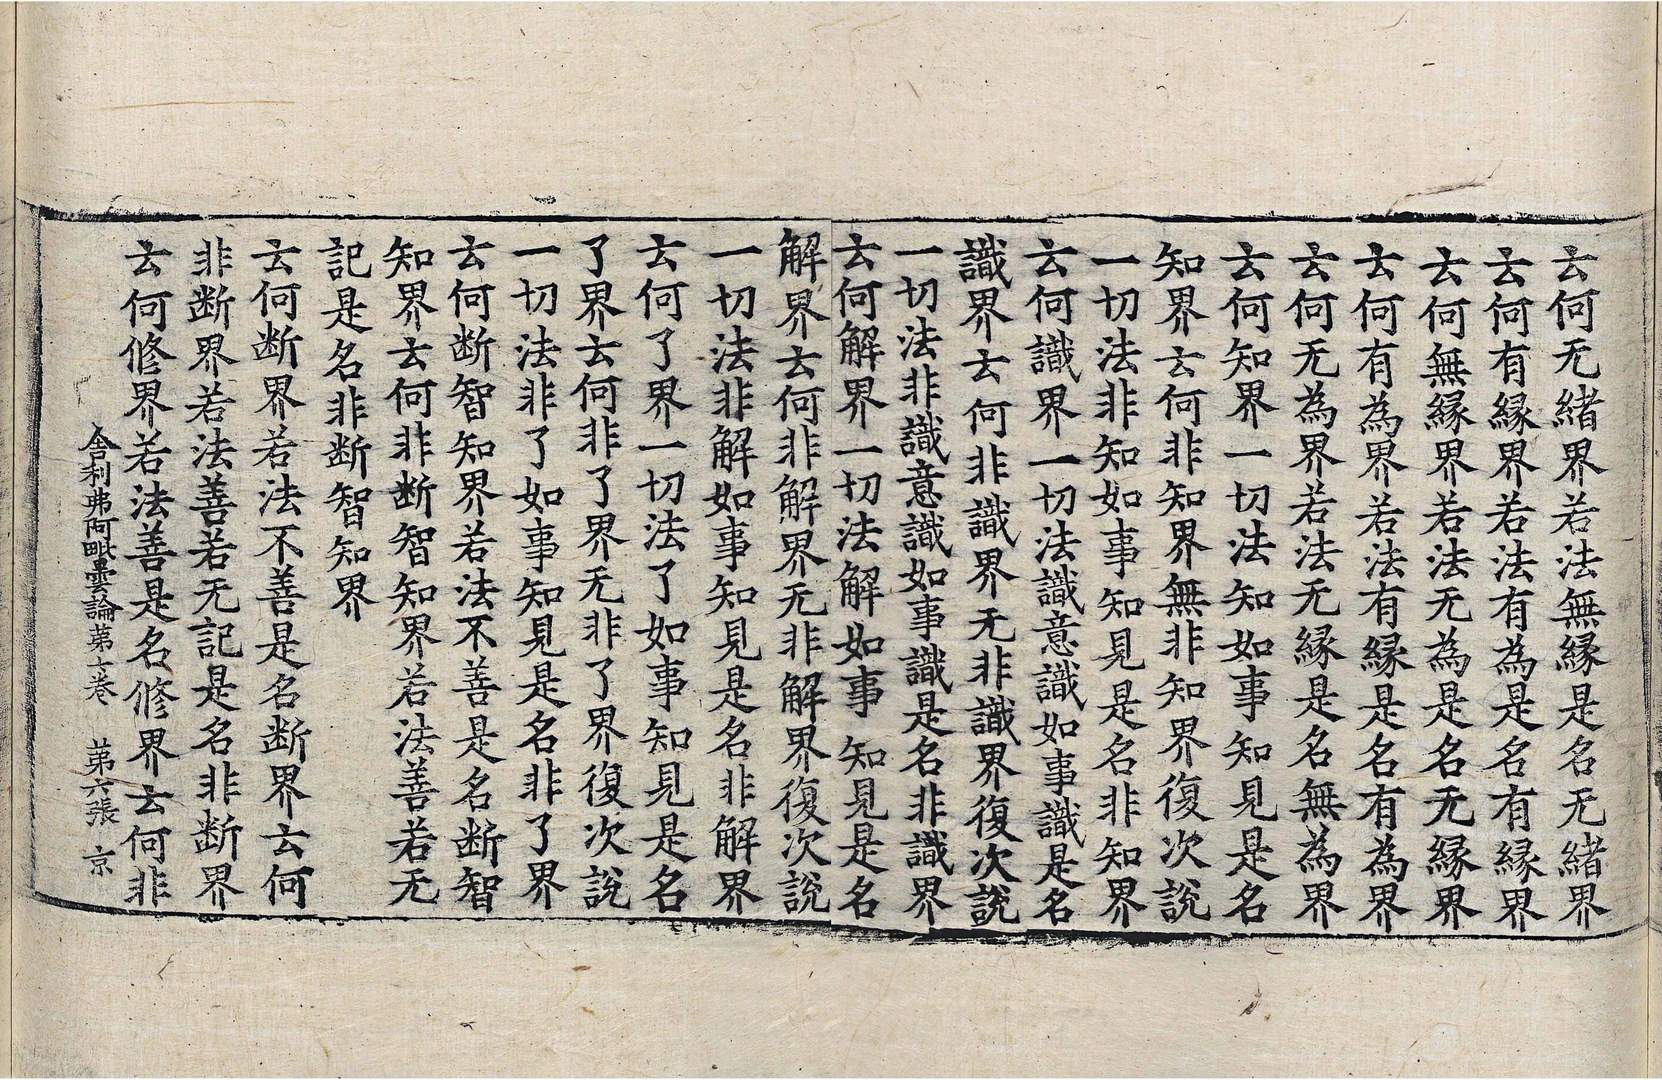 云何无緒界若法無縁是名无緒界
云何有縁界若法有為是名有縁界
云何無縁界若法无為是名无縁界
云何有為界若法有縁是名有為界
云何无為界若法无縁是名無為界
云何知界一切法知如事知見是名
知界云何非知界無非知界復次説
一切法非知如事知見是名非知界
云何識界一切法識意識如事識是名
識界云何非識界无非識界復次説
一切法非識意識如事識是名非識界
云何解界一切法解如事知見是名
解界云何非解界无非解界復次説
一切法非解如事知見是名非解界
云何了界一切法了如事知見是名
了界云何非了界无非了界復次説
一切法非了如事知見是名非了界
云何断智知界若法不善是名断智
知界云何非断智知界若法善若无
記是名非断智知界
云何断界若法不善是名断界云何
非断界若法善若无記是名非断界
云何修界若法善是名修界云何非
舎利弗阿毗曇論第七巻 第六張 京